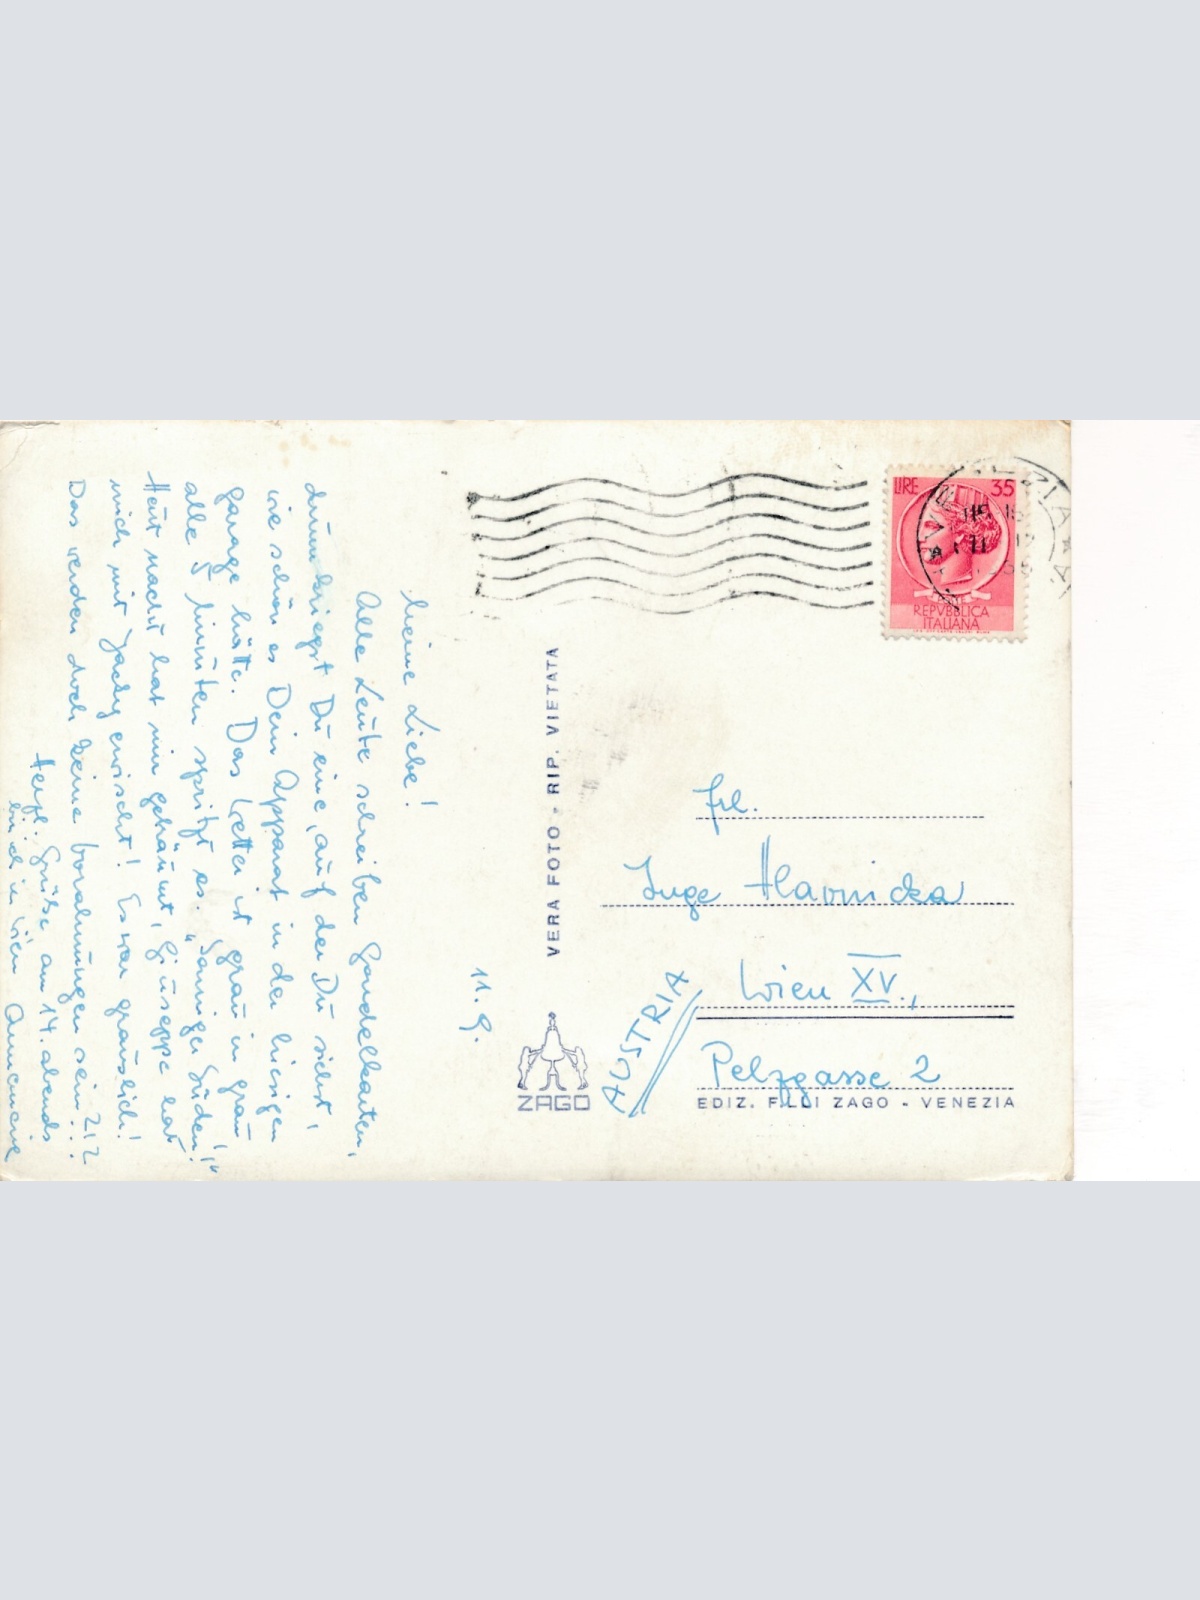 11. 9.
Meine Liebe!
Alle Leute schreiben Gondelkarten,
drum kriegst Du eine, auf der Du siehst,
wie schön es Dein Apparat in der hiesigen
Garage hätte. Das Wetter ist grau in grau
alle 5 Minuten spritzt es. „Sonniger Süden!“
Heut nacht hat mir geträumt, Giuseppe hat
mich mit Jacky erwischt! Es war grauslich!
Das werden doch keine Vorahnungen sein???
Herzl. Grüße, am 14. abends
bin ich in Wien Annemarie
VERA FOTO - RIP. VIETATA
ZAGO
LIRE 35
REPVBBLICA
ITALIANA
Frl.
Inge Hlavnicka
Wien XV.,
Pelzgasse 2
AUSTRIA
EDIZ. F.LLI ZAGO - VENEZIA